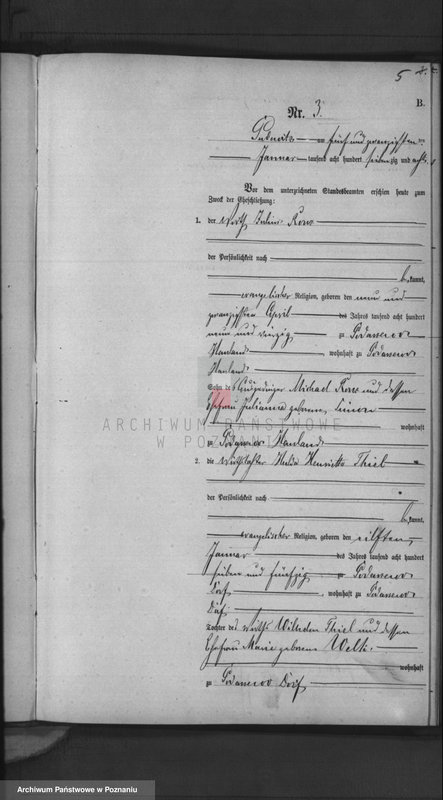 5
B.
Nr. 3.
am fünf und zwanzigsten
Januar tausend acht hundert siebenzig und acht
Vor dem unterzeichneten Standesbeamten erschien heute zum
Zweck der Eheschließung:
1. der Wirth Julius
der Persönlichkeit nach
bekannt,
evangelischer Religion, geboren den neun und
zwanzigsten April des Jahres tausend acht hundert
neun und vierzig zu Podanin
Hauland, wohnhaft zu Podanin
Hauland
Sohn des Michael und dessen
Ehefrau Julianna geborene Simon
wohnhaft
zu Hauland
ARCHIWUM PAŃSTWOWE
W POZNANIU
2. die Wirthstochter Hulda Henriette Thiel
der Persönlichkeit nach
bekannt,
evangelischer Religion, geboren den eilften
Januar des Jahres tausend acht hundert
sieben und fünfzig zu
Dorf, wohnhaft zu
Dorf
Tochter des Wirths Wilhelm Thiel und dessen
Ehefrau Marie geborene Welk.
wohnhaft
zu Dorf
Archiwum Państwowe w Poznaniu
Archiwum Państwowe w Poznaniu